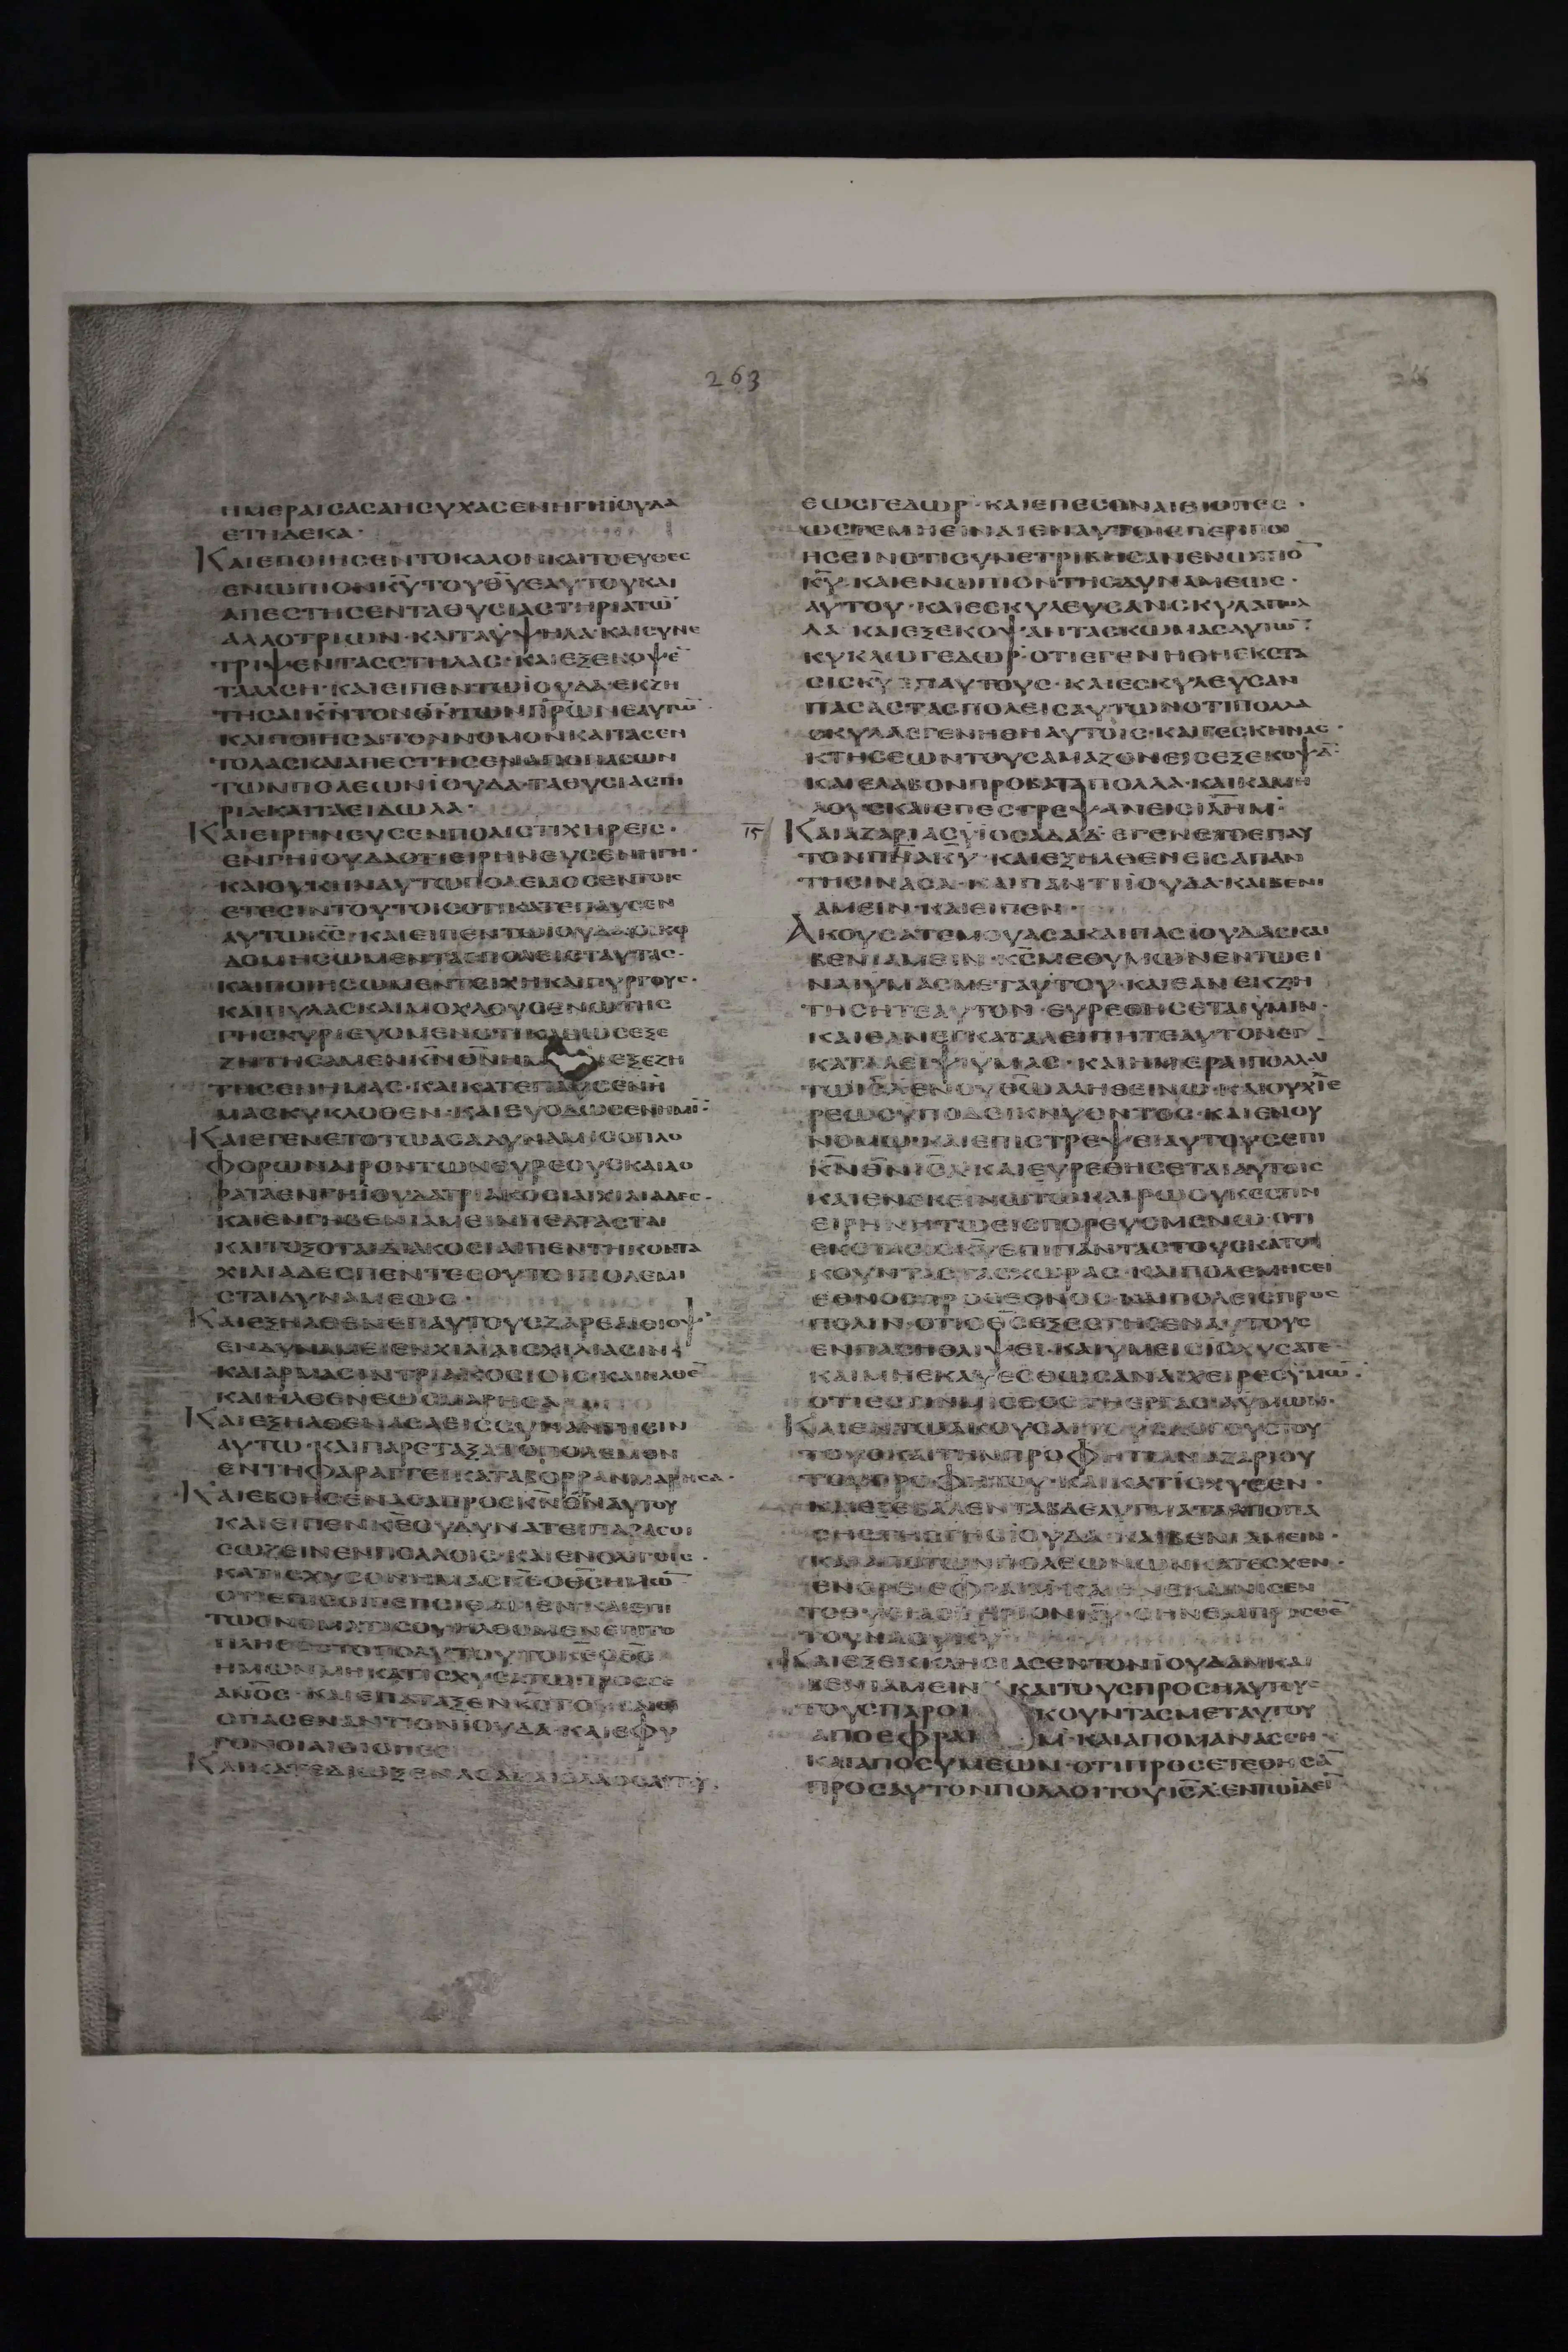 263
ΗΜΕΡΑΙΣΑΣΑΗΣΥΧΑΣΕΝΗΓΗΪΟΥΔΑ
ΕΤΗΔΕΚΑ·
ΚΑΙΕΠΟΙΗΣΕΝΤΟΚΑΛΟΝΚΑΙΤΟΕΥΘΕΣ
ΕΝΩΠΙΟΝΚ̅Υ̅ΤΟΥΘ̅Υ̅ΕΑΥΤΟΥΚΑΙ
ΑΠΕΣΤΗΣΕΝΤΑΘΥΣΙΑΣΤΗΡΙΑΤΩ̅
ΑΛΛΟΤΡΙΩΝ·ΚΑΙΤΑΫΨΗΛΑ·ΚΑΙΣΥΝΕ
ΤΡΙΨΕΝΤΑΣΣΤΗΛΑΣ·ΚΑΙΕΞΕΚΟΨΕ̅
ΤΑΑΛΣΗ·ΚΑΙΕΙΠΕΝΤΩΪΟΥΔΑ·ΕΚΖΗ
ΤΗΣΑΙΚ̅Ν̅ΤΟΝΘ̅Ν̅ΤΩΝΠ̅Ρ̅Ω̅Ν̅ΕΑΥΤΩ̅
ΚΑΙΠΟΙΗΣΑΙΤΟΝΝΟΜΟΝΚΑΙΤΑΣΕΝ
ΤΟΛΑΣΚΑΙΑΠΕΣΤΗΣΕΝΑΠΟΠΑΣΩΝ
ΤΩΝΠΟΛΕΩΝΪΟΥΔΑ·ΤΑΘΥΣΙΑΣΤΗ
ΡΙΑΚΑΙΤΑΕΙΔΩΛΑ·
ΚΑΙΕΙΡΗΝΕΥΣΕΝΠΟΛΙΣΤΙΧΗΡΕΙΣ·
ΕΝΓΗΪΟΥΔΑΟΤΙΕΙΡΗΝΕΥΣΕΝΗΓΗ·
ΚΑΙΟΥΚΗΝΑΥΤΩΠΟΛΕΜΟΣΕΝΤΟΙΣ
ΕΤΕΣΙΝΤΟΥΤΟΙΣΟΤΙΚΑΤΕΠΑΥΣΕΝ
ΑΥΤΩΚ̅Σ̅·ΚΑΙΕΙΠΕΝΤΩΪΟΥΔΑΟΙΚΟ
ΔΟΜΗΣΩΜΕΝΤΑΣΠΟΛΕΙΣΤΑΥΤΑΣ·
ΚΑΙΠΟΙΗΣΩΜΕΝΤΕΙΧΗΚΑΙΠΥΡΓΟΥΣ·
ΚΑΙΠΥΛΑΣΚΑΙΜΟΧΛΟΥΣΕΝΩΤΗΣ
ΓΗΣΚΥΡΙΕΥΟΜΕΝΟΤΙΚΑΘΩΣΕΞΕ
ΖΗΤΗΣΑΜΕΝΚ̅Ν̅Θ̅Ν̅ΗΜ ΕΞΕΖΗ
ΤΗΣΕΝΗΜΑΣ·ΚΑΙΚΑΤΕΠΑΥΣΕΝΗ
ΜΑΣΚΥΚΛΟΘΕΝ·ΚΑΙΕΥΟΔΩΣΕΝΗΜΙ̅·
ΚΑΙΕΓΕΝΕΤΟΤΩΑΣΑΔΥΝΑΜΙΣΟΠΛΟ
ΦΟΡΩΝΑΙΡΟΝΤΩΝΕΥΡΕΟΥΣΚΑΙΔΟ
ΡΑΤΑΕΝΓΗΪΟΥΔΑΤΡΙΑΚΟΣΙΑΙΧΙΛΙΑΔΕΣ·
ΚΑΙΕΝΓΗΒΕΝΙΑΜΕΙΝΠΕΛΤΑΣΤΑΙ
ΚΑΙΤΟΞΟΤΑΙΔΙΑΚΟΣΙΑΙΠΕΝΤΗΚΟΝΤΑ
ΧΙΛΙΑΔΕΣΠΑΝΤΕΣΟΥΤΟΙΠΟΛΕΜΙ
ΣΤΑΙΔΥΝΑΜΕΩΣ·
ΚΑΙΕΞΗΛΘΕΝΕΠΑΥΤΟΥΣΖΑΡΕΑΙΘΙΟΨ·
ΕΝΔΥΝΑΜΕΙΕΝΧΙΛΙΑΙΣΧΙΛΙΑΣΙΝ
ΚΑΙΑΡΜΑΣΙΝΤΡΙΑΚΟΣΙΟΙΣ·ΚΑΙΗΛΘΕ̅
ΚΑΙΗΛΘΕΝΕΩΣΜΑΡΗΣΑ
ΚΑΙΕΞΗΛΘΕΝΑΣΑΕΙΣΣΥΝΑΝΤΗΣΙΝ
ΑΥΤΩ·ΚΑΙΠΑΡΕΤΑΞΑΤΟΠΟΛΕΜΟΝ
ΕΝΤΗΦΑΡΑΓΓΕΙΚΑΤΑΒΟΡΡΑΝΜΑΡΗΣΑ·
ΚΑΙΕΒΟΗΣΕΝΑΣΑΠΡΟΣΚ̅Ν̅Θ̅Ν̅ΑΥΤΟΥ
ΚΑΙΕΙΠΕΝΚ̅Ε̅ΟΥΔΥΝΑΤΕΙΠΑΡΑΣΟΙ
ΣΩΖΕΙΝΕΝΠΟΛΛΟΙΣ·ΚΑΙΕΝΟΛΙΓΟΙΣ·
ΚΑΤΙΣΧΥΣΟΝΗΜΑΣΚ̅Ε̅ΟΘ̅Σ̅ΗΜΩ̅
ΟΤΙΕΠΙΣΟΙΠΕΠΟΙΘΑΜΕΝ·ΚΑΙΕΠΙ
ΤΩΟΝΟΜΑΤΙΣΟΥΗΛΘΟΜΕΝΕΠΙΤΟ
ΠΛΗΘΟΣΤΟΠΟΛΥΤΟΥΤΟΚ̅Ε̅ΟΘ̅Σ̅
ΗΜΩΝΜΗΚΑΤΙΣΧΥΣΑΤΩΠΡΟΣΣΕ
ΑΝ̅Ο̅Σ̅·ΚΑΙΕΠΑΤΑΞΕΝΚ̅Σ̅ΤΟΥΣΑΙΘΙ
ΟΠΑΣΕΝΑΝΤΙΟΝΪΟΥΔΑ·ΚΑΙΕΦΥ
ΓΟΝΟΙΑΙΘΙΟΠΕΣ
ΚΑΙΚΑΤΕΔΙΩΞΕΝΑΣΑΚΑΙΟΛΑΟΣΑΥΤΟΥ
ΕΩΣΓΕΔΩΡ·ΚΑΙΕΠΕΣΟΝΑΙΘΙΟΠΕΣ·
ΩΣΤΕΜΗΕΙΝΑΙΕΝΑΥΤΟΙΣΠΕΡΙΠΟΙ
ΗΣΕΙΝΟΤΙΣΥΝΕΤΡΙΒΗΣΑΝΕΝΩΠΙΟ̅
Κ̅Υ̅·ΚΑΙΕΝΩΠΙΟΝΤΗΣΔΥΝΑΜΕΩΣ·
ΑΥΤΟΥ·ΚΑΙΕΣΚΥΛΕΥΣΑΝΣΚΥΛΑΠΟΛ
ΛΑ·ΚΑΙΕΞΕΚΟΨΑΝΤΑΣΚΩΜΑΣΑΥΤΩ̅·
ΚΥΚΛΩΓΕΔΩΡ·ΟΤΙΕΓΕΝΗΘΗΕΚΣΤΑ
ΣΙΣΚ̅Υ̅ΕΠΑΥΤΟΥΣ·ΚΑΙΕΣΚΥΛΕΥΣΑΝ
ΠΑΣΑΣΤΑΣΠΟΛΕΙΣΑΥΤΩΝΟΤΙΠΟΛΛΑ
ΣΚΥΛΑΕΓΕΝΗΘΗΑΥΤΟΙΣ·ΚΑΙΓΕΣΚΗΝΑΣ·
ΚΤΗΣΕΩΝΤΟΥΣΑΜΑΖΟΝΕΙΣΕΞΕΚΟΨΑ̅·
ΚΑΙΕΛΑΒΟΝΠΡΟΒΑΤΑΠΟΛΛΑ·ΚΑΙΚΑΜΗ
ΛΟΥΣΚΑΙΕΠΕΣΤΡΕΨΑΝΕΙΣΙ̅Λ̅Η̅Μ̅·
ΙΕ ΚΑΙΑΖΑΡΙΑΣΫΙΟΣΑΔΑΔ·ΕΓΕΝΕΤΟΕΠΑΥ
ΤΟΝΠ̅Ν̅Α̅Κ̅Υ̅·ΚΑΙΕΞΗΛΘΕΝΕΙΣΑΠΑΝ
ΤΗΣΙΝΑΣΑ·ΚΑΙΠΑΝΤΙΪΟΥΔΑ·ΚΑΙΒΕΝΙ
ΑΜΕΙΝ·ΚΑΙΕΙΠΕΝ·
ΑΚΟΥΣΑΤΕΜΟΥΑΣΑΚΑΙΠΑΣΪΟΥΔΑΣΚΑΙ
ΒΕΝΙΑΜΕΙΝ·Κ̅Σ̅ΜΕΘΥΜΩΝΕΝΤΩΕΙ
ΝΑΙΫΜΑΣΜΕΤΑΥΤΟΥ·ΚΑΙΕΑΝΕΚΖΗ
ΤΗΣΗΤΕΑΥΤΟΝ·ΕΥΡΕΘΗΣΕΤΑΙΫΜΙΝ·
ΚΑΙΕΑΝΕΓΚΑΤΑΛΕΙΠΗΤΕΑΥΤΟΝΕΓ
ΚΑΤΑΛΕΙΨΙΫΜΑΣ·ΚΑΙΗΜΕΡΑΙΠΟΛΛΑΙ
ΤΩΙ̅Σ̅Λ̅ΕΝΟΥΘ̅Ω̅ΑΛΗΘΕΙΝΩ·ΚΑΙΟΥΧΪΕ
ΡΕΩΣΥΠΟΔΕΙΚΝΥΟΝΤΟΣ·ΚΑΙΕΝΟΥ
ΝΟΜΩ·ΚΑΙΕΠΙΣΤΡΕΨΕΙΑΥΤΟΥΣΕΠΙ
Κ̅Ν̅Θ̅Ν̅Ι̅Σ̅Λ̅ΚΑΙΕΥΡΕΘΗΣΕΤΑΙΑΥΤΟΙΣ
ΚΑΙΕΝΕΚΕΙΝΩΤΩΚΑΙΡΩΟΥΚΕΣΤΙΝ
ΕΙΡΗΝΗΤΩΕΙΣΠΟΡΕΥΟΜΕΝΩ·ΟΤΙ
ΕΚΣΤΑΣΙΣΚ̅Υ̅ΕΠΙΠΑΝΤΑΣΤΟΥΣΚΑΤΟΙ
ΚΟΥΝΤΑΣΤΑΣΧΩΡΑΣ·ΚΑΙΠΟΛΕΜΗΣΕΙ
ΕΘΝΟΣΠΡΟΣΕΘΝΟΣ·ΚΑΙΠΟΛΕΙΣΠΡΟΣ
ΠΟΛΙΝ·ΟΤΙΟΘ̅Σ̅ΕΞΕΣΤΗΣΕΝΑΥΤΟΥΣ
ΕΝΠΑΣΗΘΛΙΨΕΙ·ΚΑΙΫΜΕΙΣΙΣΧΥΣΑΤΕ
ΚΑΙΜΗΕΚΛΥΕΣΘΩΣΑΝΑΙΧΕΙΡΕΣΫΜΩ̅·
ΟΤΙΕΣΤΙΝΜΙΣΘΟΣΤΗΕΡΓΑΣΙΑΫΜΩΝ·
ΚΑΙΕΝΤΩΑΚΟΥΣΑΙΤΟΥΣΛΟΓΟΥΣΤΟΥ
ΤΟΥΣΚΑΙΤΗΝΠΡΟΦΗΤΙΑΝΑΖΑΡΙΟΥ
ΤΟΥΠΡΟΦΗΤΟΥ·ΚΑΙΚΑΤΙΣΧΥΣΕΝ·
ΚΑΙΕΞΕΒΑΛΕΝΤΑΒΔΕΛΥΓΜΑΤΑΑΠΟΠΑ
ΣΗΣΤΗΣΓΗΣΪΟΥΔΑ·ΚΑΙΒΕΝΙΑΜΕΙΝ·
ΚΑΙΑΠΟΤΩΝΠΟΛΕΩΝΩΝΚΑΤΕΣΧΕΝ·
ΕΝΟΡΕΙΕΦΡΑΙΜ·ΚΑΙΕΝΕΚΑΙΝΙΣΕΝ
ΤΟΘΥΣΙΑΣΤΗΡΙΟΝΚ̅Υ̅·ΟΗΝΕΜΠΡΟΣΘΕ̅
ΤΟΥΝΑΟΥΚ̅Υ̅
ΚΑΙΕΞΕΚΚΛΗΣΙΑΣΕΝΤΟΝΪΟΥΔΑΝΚΑΙ
ΒΕΝΙΑΜΕΙΝ ΚΑΙΤΟΥΣΠΡΟΣΗΛΥΤΟΥΣ
ΤΟΥΣΠΑΡΟΙ ΚΟΥΝΤΑΣΜΕΤΑΥΤΟΥ
ΑΠΟΕΦΡΑΙ Μ·ΚΑΙΑΠΟΜΑΝΑΣΣΗ·
ΚΑΙΑΠΟΣΥΜΕΩΝ·ΟΤΙΠΡΟΣΕΤΕΘΗΣΑ̅
ΠΡΟΣΑΥΤΟΝΠΟΛΛΟΙΤΟΥΙ̅Σ̅Λ̅·ΕΝΤΩΙΔΕΙ̅